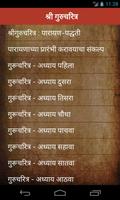 11:28
श्री गुरुचरित्र
श्रीगुरुचरित्र : पारायण-पद्धती
पारायणाच्या प्रारंभी करावयाचा संकल्प
गुरूचरित्र - अध्याय पहिला
गुरूचरित्र - अध्याय दुसरा
गुरूचरित्र - अध्याय तिसरा
गुरूचरित्र - अध्याय चौथा
गुरूचरित्र - अध्याय पाचवा
गुरूचरित्र - अध्याय सहावा
गुरूचरित्र - अध्याय सातवा
गुरूचरित्र - अध्याय आठवा